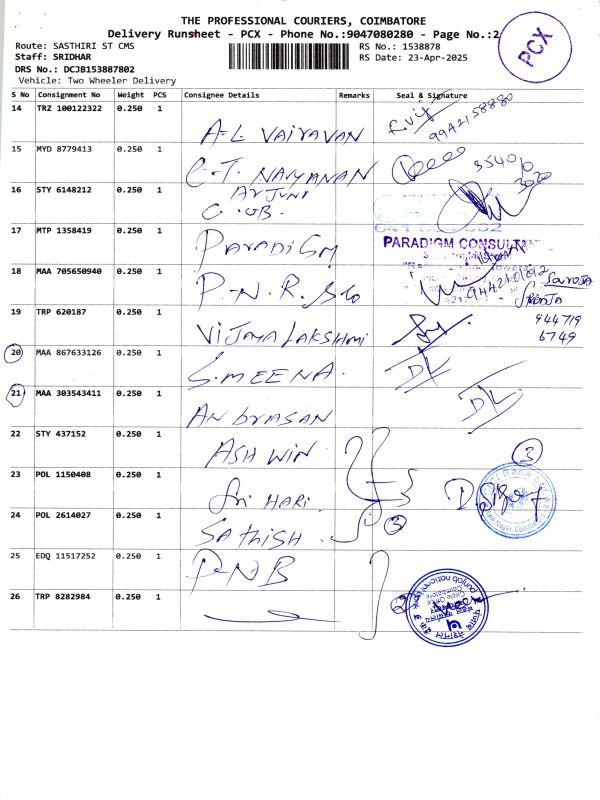 THE PROFESSIONAL COURIERS, COIMBATORE
Delivery Runsheet - PCX - Phone No.:9047080280 - Page No.:2
PCX
Route: SASTHIRI ST CMS
RS No.: 1538878
Staff: SRIDHAR
RS Date: 23-Apr-2025
DRS No.: DCJB153887802
Vehicle: Two Wheeler Delivery
S No Consignment No Weight PCS Consignee Details Remarks Seal & Signature
14 TRZ 100122322 0.250 1 A-L VAIRAVAN 9942158880
15 MYD 8779413 0.250 1 C.T. NARYANAN 35401
16 STY 6148212 0.250 1 ARJUN C.UB.
17 MTP 1358419 0.250 1 PARADIGM PARADIGM CONSULTAN
18 MAA 705650940 0.250 1 P.N.R. SAROJA
19 TRP 620187 0.250 1 VIJAYA LAKSHMI 944719 6749
20 MAA 867633126 0.250 1 S.MEENA. DL
21 MAA 303543411 0.250 1 ANBYASAN DL
22 STY 437152 0.250 1 ASHWIN 3
23 POL 1150408 0.250 1 Sri HARI
24 POL 2614027 0.250 1 SATHISH 3
25 EDQ 11517252 0.250 1 PNB
26 TRP 8282984 0.250 1 2
punjab national bank
Circle Office
Coimbatore